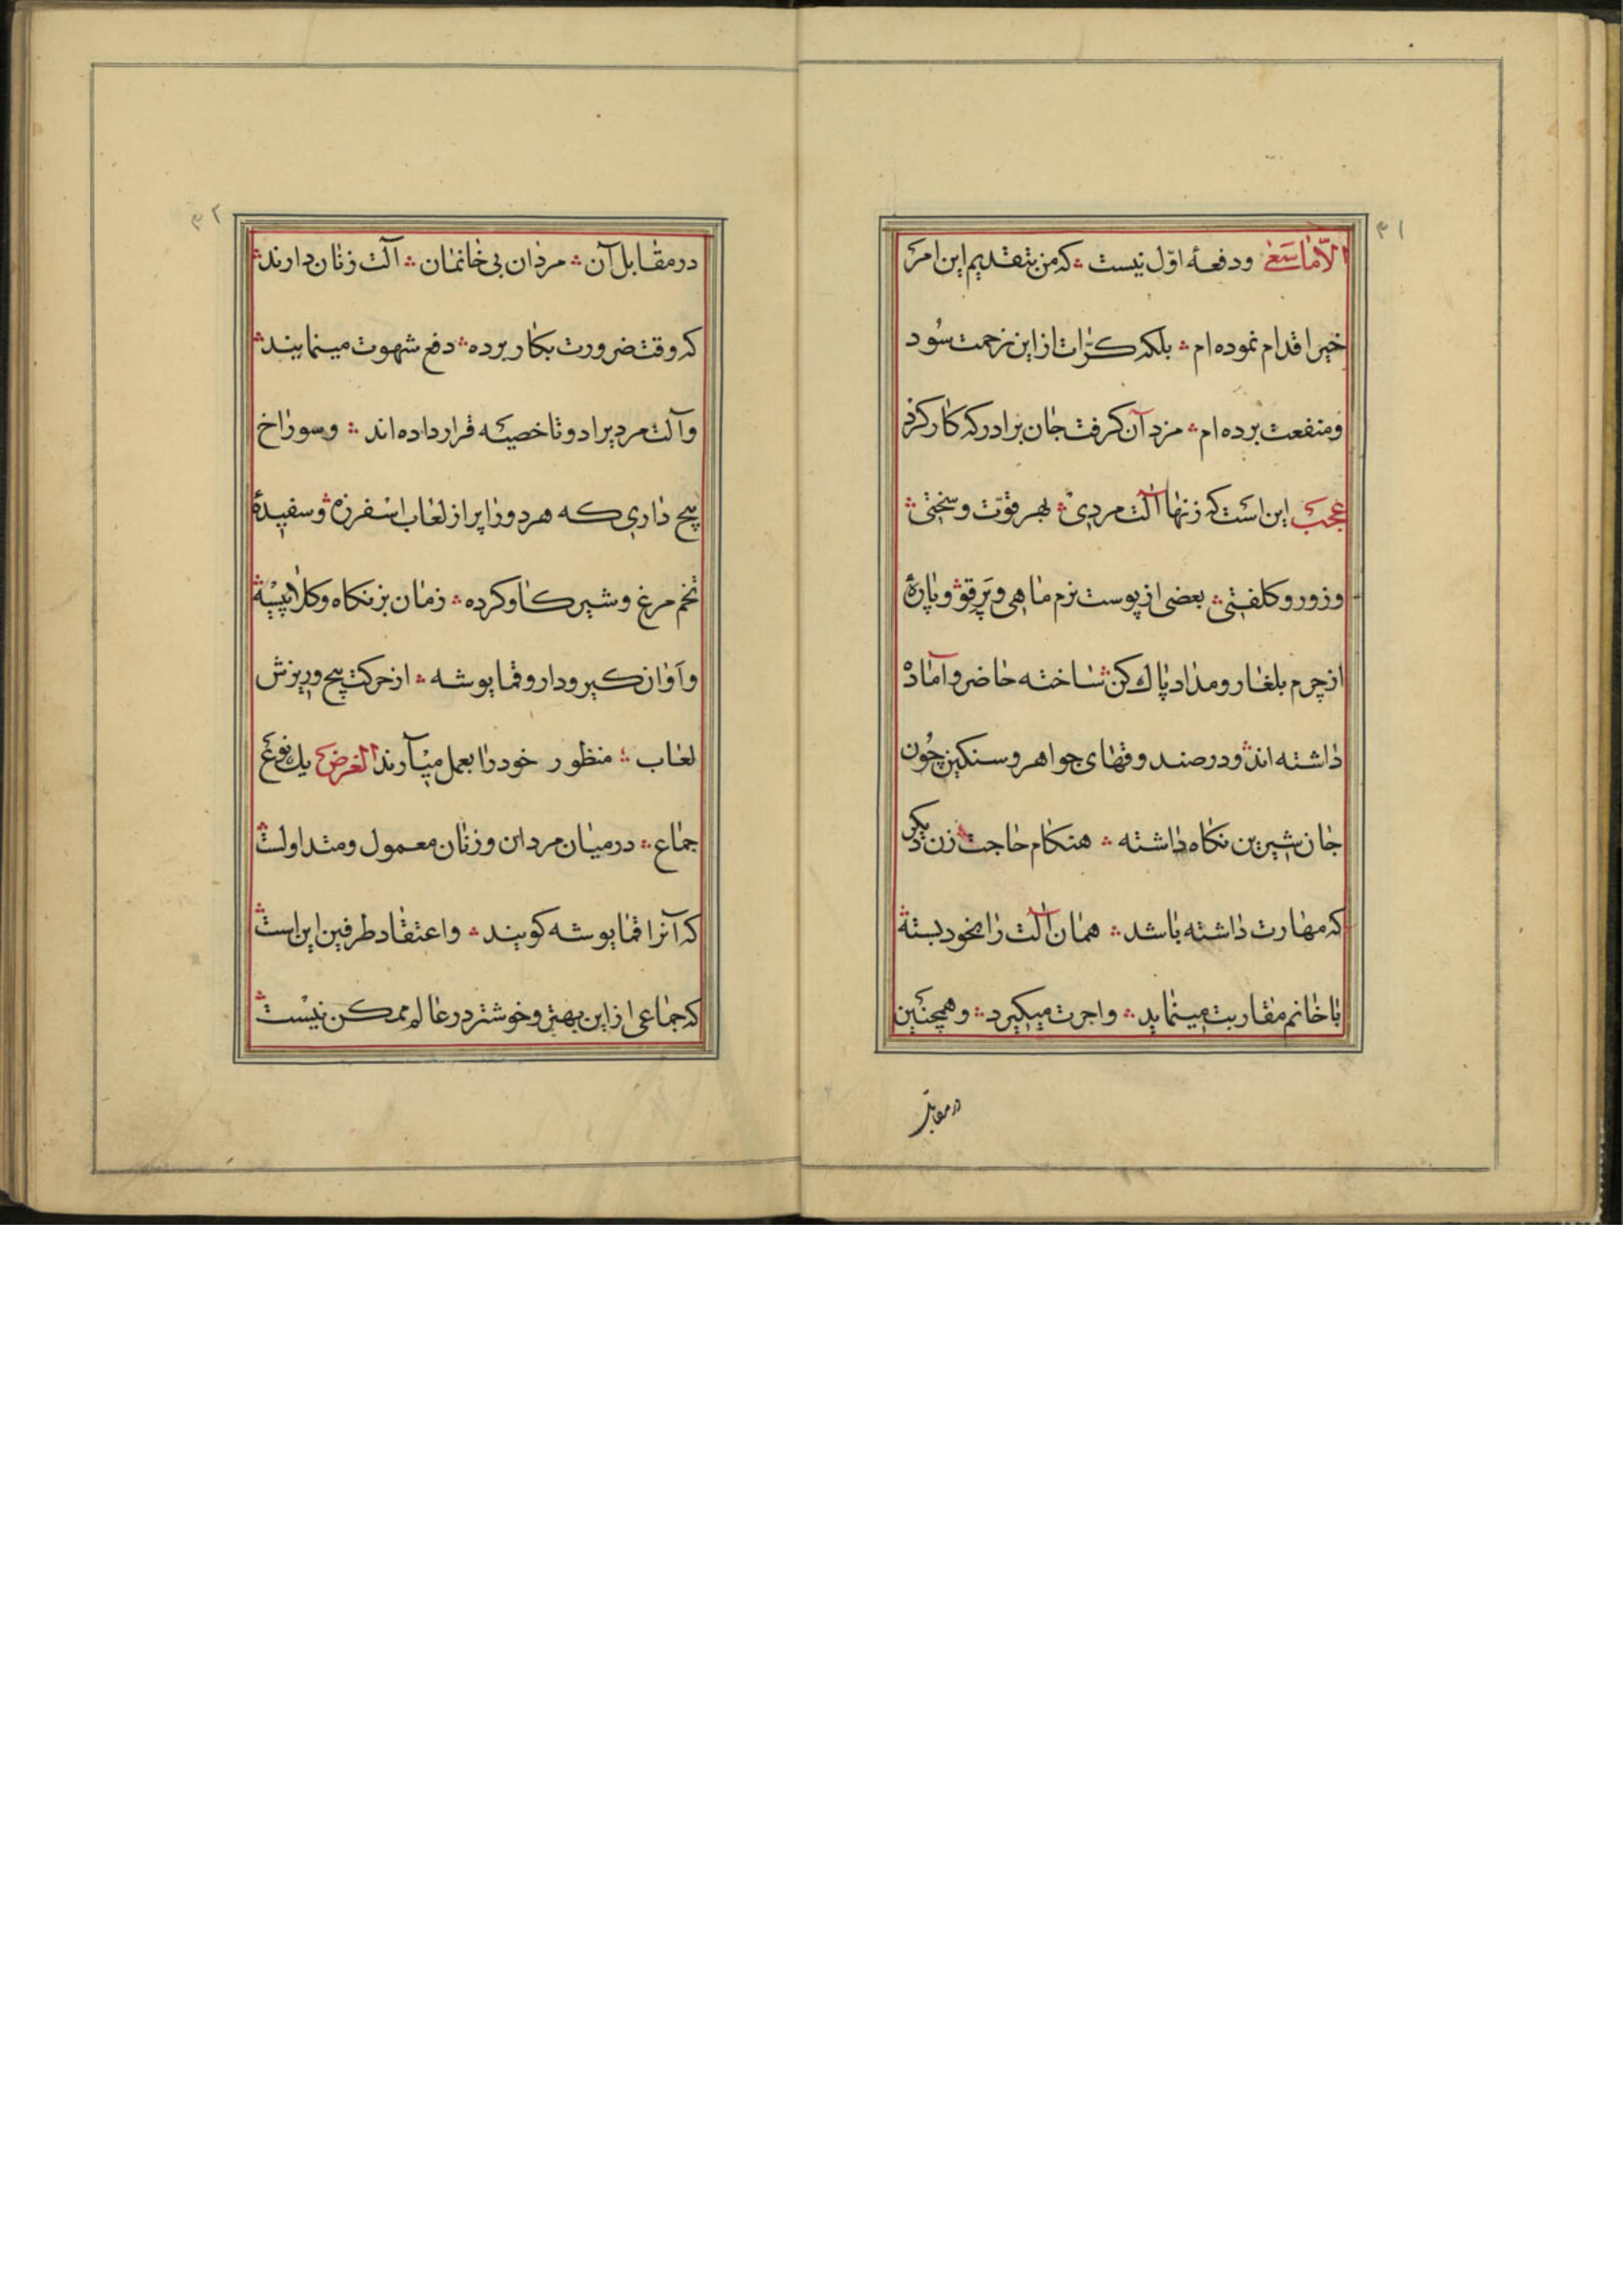 ۳۱
الّا ما سَعىٰ ودفعهٔ اوّل نیست که من بتقدیم این امر
خیر اقدام نموده‌ام بلکه کرّات از این زحمت سُود
ومنفعت برده‌ام مزد آن کرفت جان برادر که کار کرد
عجب این است که زنها آلت مردی بهر قوّت وسختی
وزور وکلفتی بعضی از پوست نرم ماهی وپَرقو وپارهٔ
از چرم بلغار و مداد پاک کن ساخته حاضر وآماده
داشته‌اند ودر صندوقهای جواهر وسنکین چُون
جان شیرین نکاه داشته هنکام حاجت زن دیکر
که مهارت داشته باشد همان آلت را بخود بسته
با خانم مقاربت مینماید واجرت میکیرد وهمچنین
در مقابل
۳۲
در مقابل آن مردان بی خانمان آلت زنان دارند
که وقت ضرورت بکار برده دفع شهوت مینمایند
وآلت مرد برا دو تا خصیه قرار داده‌اند وسوراخ
پیچ داری که هر دو را پر از لعاب اسفرزه وسفیدهٔ
تخم مرغ وشیر کاو کرده زمان بزنکاه وکلاپیسه
وآوان کیر ودار وقماپوشه از حرکت پیچ وریزش
لعاب منظور خود را بعمل میآرند الغرض یک نوع
جماع در میان مردان وزنان معمول ومتداولست
که آنرا قماپوشه کویند واعتقاد طرفین این است
که جماعی از این بهتر وخوشتر در عالم ممکن نیست